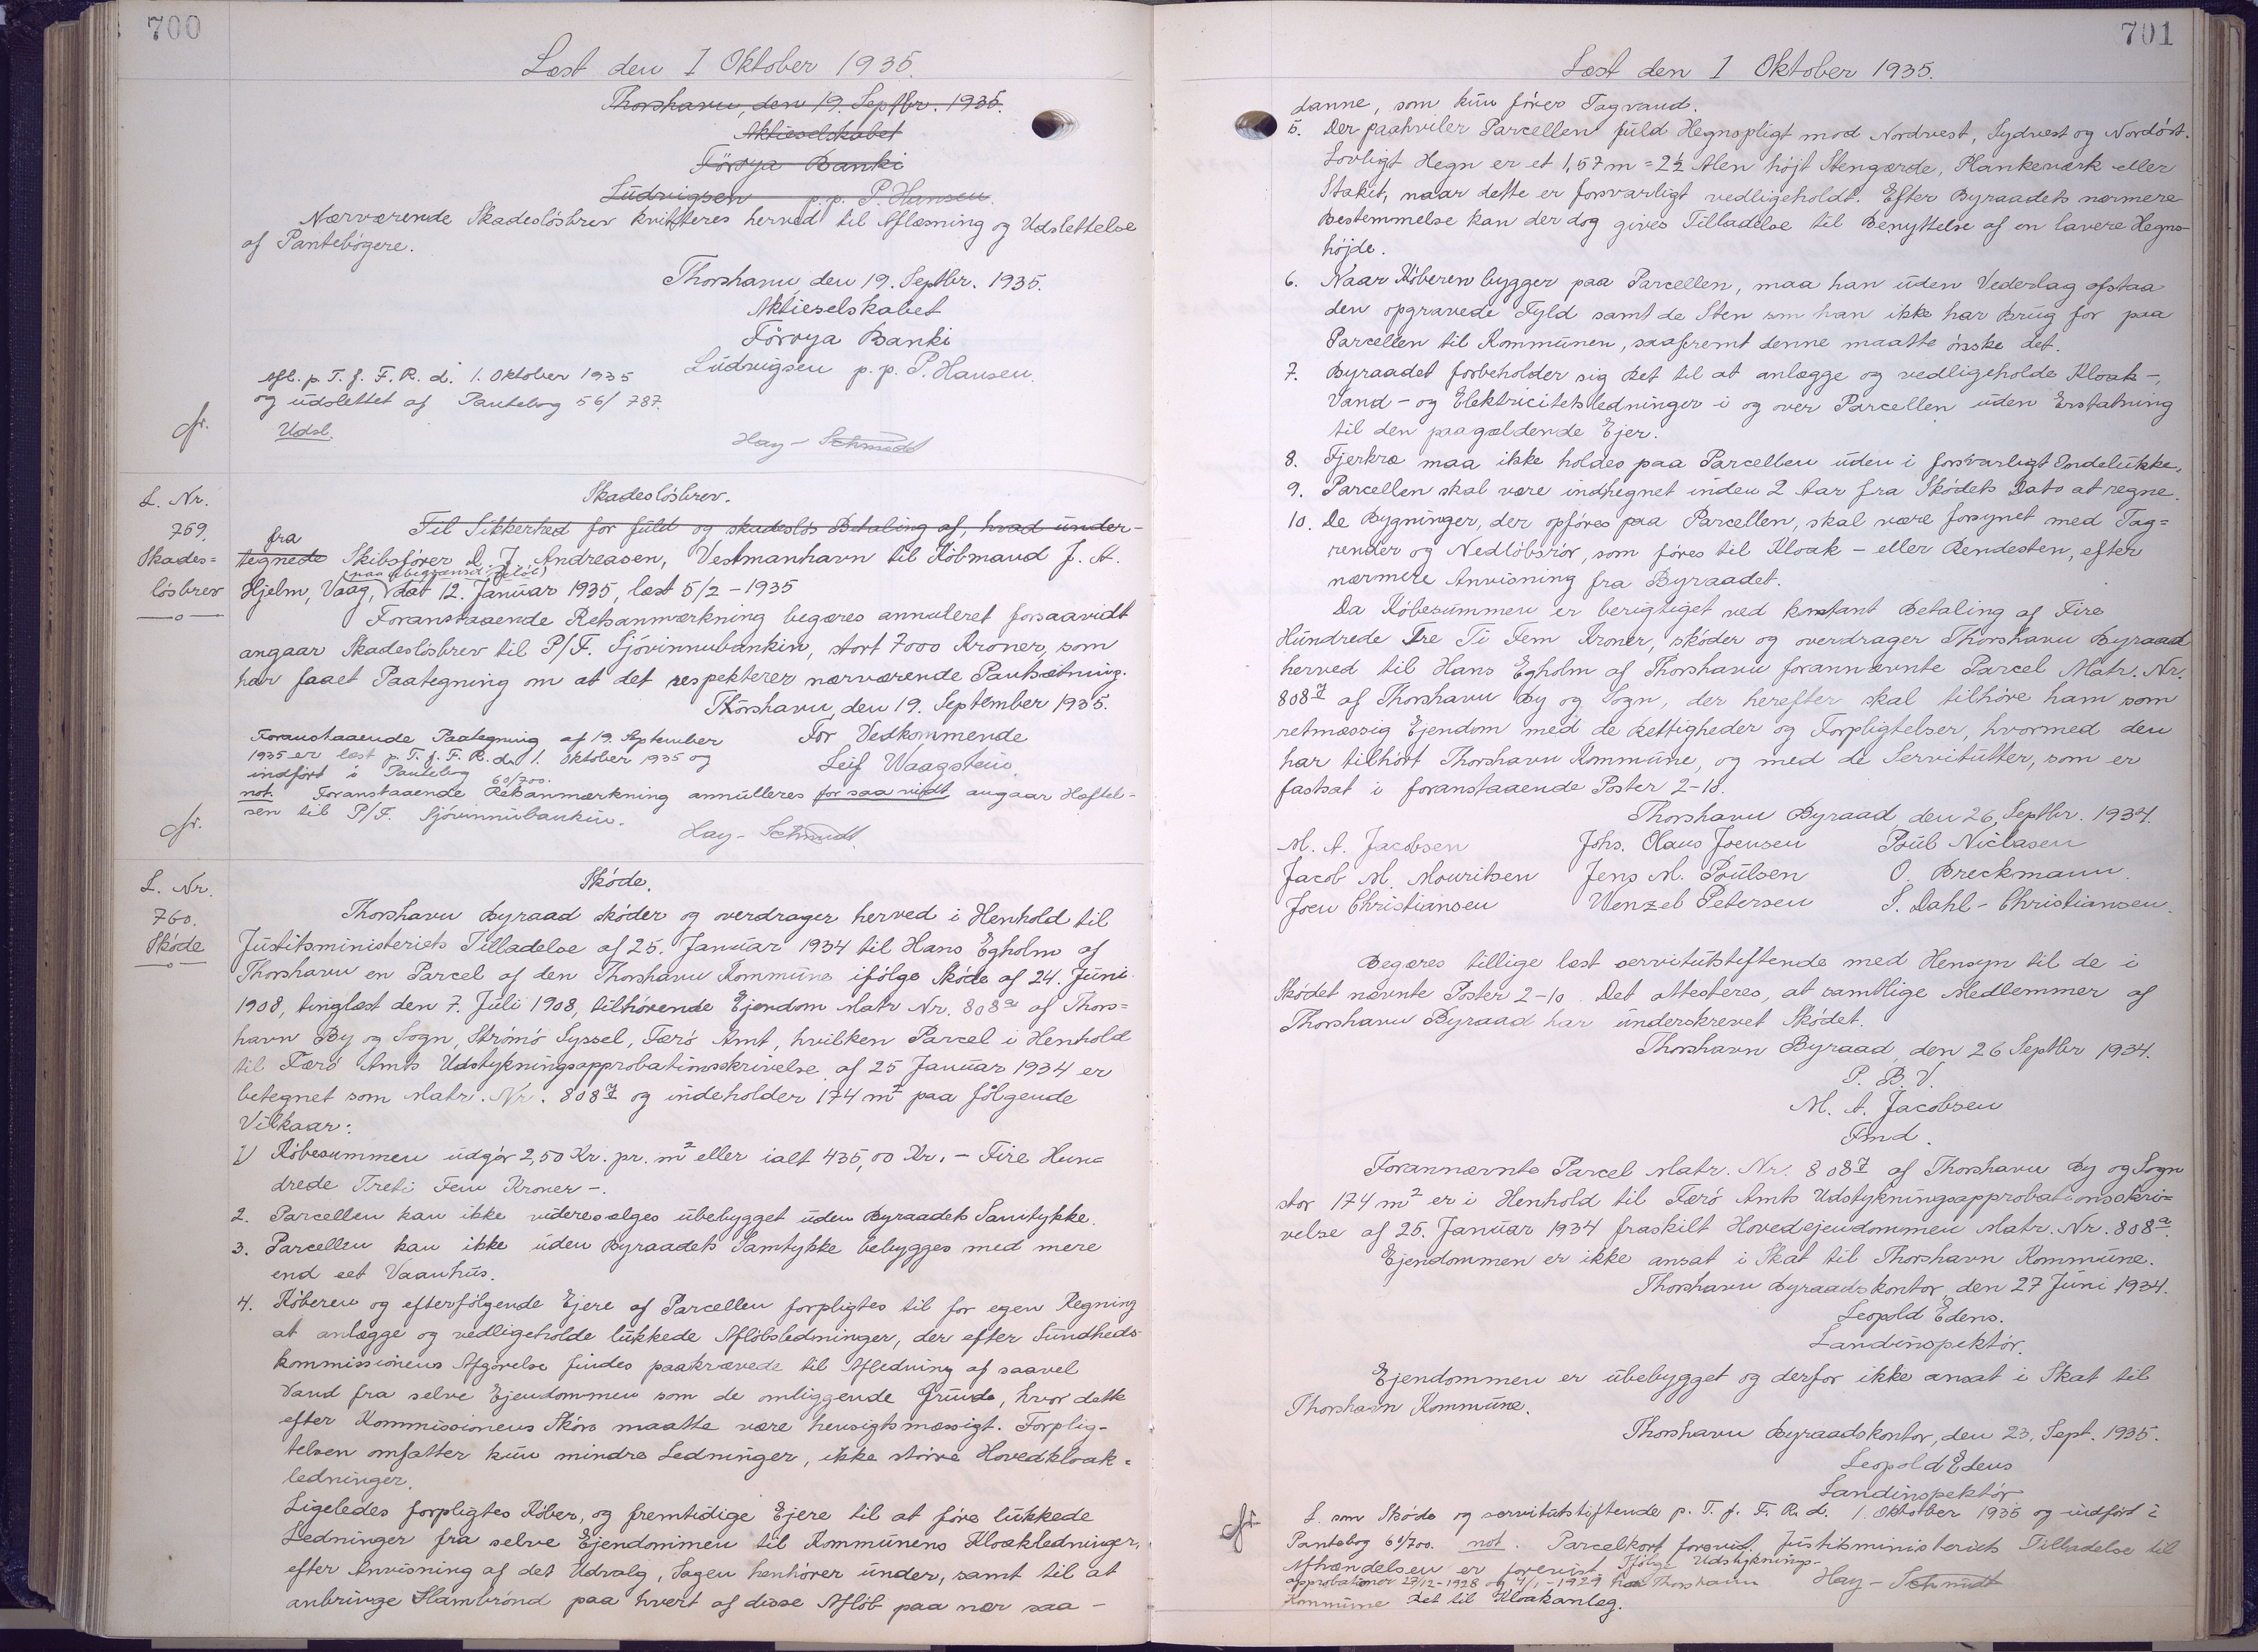 700
Læst den 1 Oktober 1935.
Thorshavn, den 19. Septbr. 1935.
Aktieselskabet
Föroya Banki
Ludvigsen p.p. P. Hansen.
Nærværende Skadeslösbrev kvitteres herved til Aflæsning og Udslettelse
af Pantebögere.
Thorshavn, den 19. Septbr. 1935.
Aktieselskabet
Föroya Banki
Ludvigsen p. p. P. Hansen.
Afl. p. T. f. F. R. d. 1. Oktober 1935
og udslettet af Pantebog 56/787.
Udsl.
Hay-Schmidt
L. Nr.
759.
Skades=
lösbrev
Skadeslösbrev.
Til Sikkerhed for fuld og skadeslös Betaling af, hvad under-
fra
tegnede Skibsförer D. J. Andreasen, Vestmanhavn til Köbmand J. A.
(paa ubegrænset Belöb)
Hjelm, Vaag, dat 12. Januar 1935, læst 5/2-1935
Foranstaaende Retsanmærkning begæres annuleret forsaavidt
angaar Skadeslösbrev til P/F. Sjóvinnubankin, stort 7000 Kroner, som
har faaet Paategning om at det respekterer nærværende Pantsætning.
Thorshavn, den 19. September 1935.
For Vedkommende
Leif Waagstein.
Foranstaaende Paategning af 19. September
1935 er læst p. T. f. F. R. d. 1. Oktober 1935 og
indfört i Pantebog 60/700.
not. Foranstaaende Retsanmærkning annulleres for saa vidt angaar Hæftel-
sen til P/F. Sjóvinnubankin.
Hay-Schmidt.
L. Nr.
760.
Sköde
Sköde.
Thorshavn Byraad sköder og overdrager herved i Henhold til
Justitsministeriets Tilladelse af 25. Januar 1934 til Hans Egholm af
Thorshavn en Parcel af den Thorshavn Kommune ifölge Sköde af 24. Juni
1908, tinglæst den 7. Juli 1908, tilhörende Ejendom Matr Nr. 808a af Thors=
havn By og Sogn, Strömö Syssel, Færö Amt, hvilken Parcel i Henhold
til Færö Amts Udstykningsapprobationsskrivelse af 25 Januar 1934 er
betegnet som Matr. Nr. 808 og indeholder 174 m2 paa fölgende
Vilkaar:
1) Köbesummen udgör 2,50 Kr. pr. m2 eller ialt 435,00 Kr. - Fire Hun=
drede Treti Fem Kroner -.
2. Parcellen kan ikke videresælges übebygget uden Byraadets Samtykke.
3. Parcellen kan ikke uden Byraadets Samtykke bebygges med mere
end eet Vaanhus.
4. Köberen og efterfölgende Ejere af Parcellen forpligtes til for egen Regning
at anlægge og vedligeholde lukkede Aflöbsledninger, der efter Sundheds-
kommissionens Afgörelse findes paakrævede til Afledning af saavel
Vand fra selve Ejendommen som de omliggende Grunde, hvor dette
efter Kommissionens Skön maatte være hensigtsmæssigt. Forplig-
telsen omfatter kun mindre Ledninger, ikke större Hovedkloak=
ledninger.
Ligeledes forpligtes Köber, og fremtidige Ejere til at före lukkede
Ledninger fra selve Ejendommen til Kommunens Kloakledninger,
efter Anvisning af det Udvalg, Sagen henhörer under, samt til at
anbringe Slambrönd paa hvert af disse Aflöb paa nær saa-
701
Læst den 1 Oktober 1935.
danne, som kun förer Tagvand.
5. Der paahviler Parcellen fuld Hegnspligt mod Nordvest, Sydvest og Nordöst.
Lovligt Hegn er et 1,57 m = 2½ Alen höjt Stengærde, Plankeværk eller
Stakit, naar dette er forsvarligt vedligeholdt. Efter Byraadets nærmere
Bestemmelse kan der dog gives Tilladelse til Benyttelse af en lavere Hegns-
höjde.
6. Naar Köberen bygger paa Parcellen, maa han uden Vederlag afstaa
den opgravede Fyld samt de Sten som han ikke har Brug for paa
Parcellen til Kommunen, saafremt denne maatte önske det.
7. Byraadet forbeholder sig Ret til at anlægge og vedligeholde Kloak-,
Vand- og Elektricitetsledninger i og over Parcellen uden Erstatning
til den paagældende Ejer.
8. Fjerkræ maa ikke holdes paa Parcellen uden i forsvarligt Indelukke.
9. Parcellen skal være indhegnet inden 2 Aar fra Sködets Dato at regne.
10. De Bygninger, der opföres paa Parcellen, skal være forsynet med Tag=
render og Nedlöbsrör, som föres til Kloak- eller Rendesten, efter
nærmere Anvisning fra Byraadet.
Da Köbesummen er berigtiget ved kontant Betaling af Fire
Hundrede Tre Ti Fem Kroner, sköder og overdrager Thorshavn Byraad
herved til Hans Egholm af Thorshavn forannævnte Parcel Matr. Nr.
808 af Thorshavn By og Sogn, der herefter skal tilhöre ham som
retmæssig Ejendom med de Rettigheder og Forpligtelser, hvormed den
har tilhört Thorshavn Kommune, og med de Servitutter, som er
fastsat i foranstaaende Poster 2-10.
Thorshavn Byraad, den 26. Septbr. 1934.
M. A. Jacobsen Johs. Olaus Joensen Poul Niclasen
Jacob M. Mouritsen Jens M. Poulsen O. Breckmann.
Joen Christiansen Wenzel Petersen S. Dahl-Christiansen.
Begæres tillige læst servitutstiftende med Hensyn til de i
Sködet nævnte Poster 2-10. Det attesteres, at samtlige Medlemmer af
Thorshavn Byraad har underskrevet Sködet.
Thorshavn Byraad, den 26 Septbr 1934.
P. B. V.
M. A. Jacobsen
Fmd.
Forannævnte Parcel Matr. Nr. 808 af Thorshavn By og Sogn
stor 174 m2 er i Henhold til Færö Amts Udstykningsapprobationsskri=
velse af 25. Januar 1934 fraskilt Hovedejendommen Matr. Nr. 808a.
Ejendommen er ikke ansat i Skat til Thorshavn Kommune.
Thorshavn Byraadskontor, den 27 Juni 1934.
Leopold Edens.
Landinspektör.
Ejendommen er übebygget og derfor ikke ansat i Skat til
Thorshavn Kommune.
Thorshavn Byraadskontor, den 23. Sept. 1935.
Leopold Edens
Landinspektör
L. som Sköde og servitutstiftende p. T. f. F. R. d. 1. Oktober 1935 og indfört i
Pantebog 60/700. not. Parcelkort forevist. Justitsministeriets Tilladelse til
Afhændelsen er forevist. Ifölge Udstyknings-
approbationer 27/12-1928 og 4/1-1929 har Thorshavn Hay-Schmidt
Kommune Ret til Kloakanlæg.